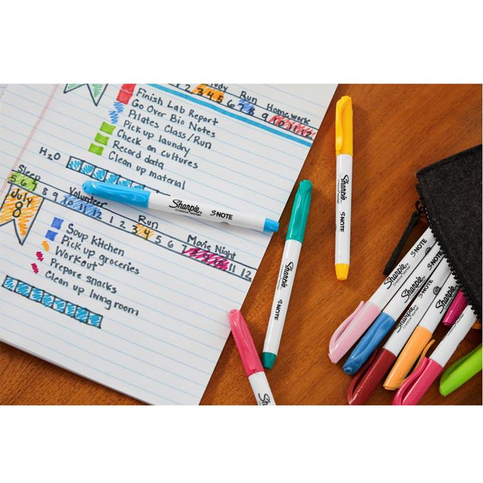 Study Run Homework
3 4 5 6 7 8 9 10 11 12
Finish Lab Report
Go Over Bio Notes
Pilates Class/Run
Pick up laundry
Check on cultures
Record data
Clean up material
H2O
Sleep Volunteer Run Movie Night
5 6 7 8 9 10 11 12 1 2 3 4 5 6 7 8 9 10 11 12
July
8
Soup Kitchen
Pick up groceries
Workout
Prepare snacks
Clean up living room
Sharpie S·NOTE
Sharpie S·NOTE
Sharpie S·NOTE
S·NOTE
Sharpie S·NOTE
Sharpie S·NOTE
Sharpie